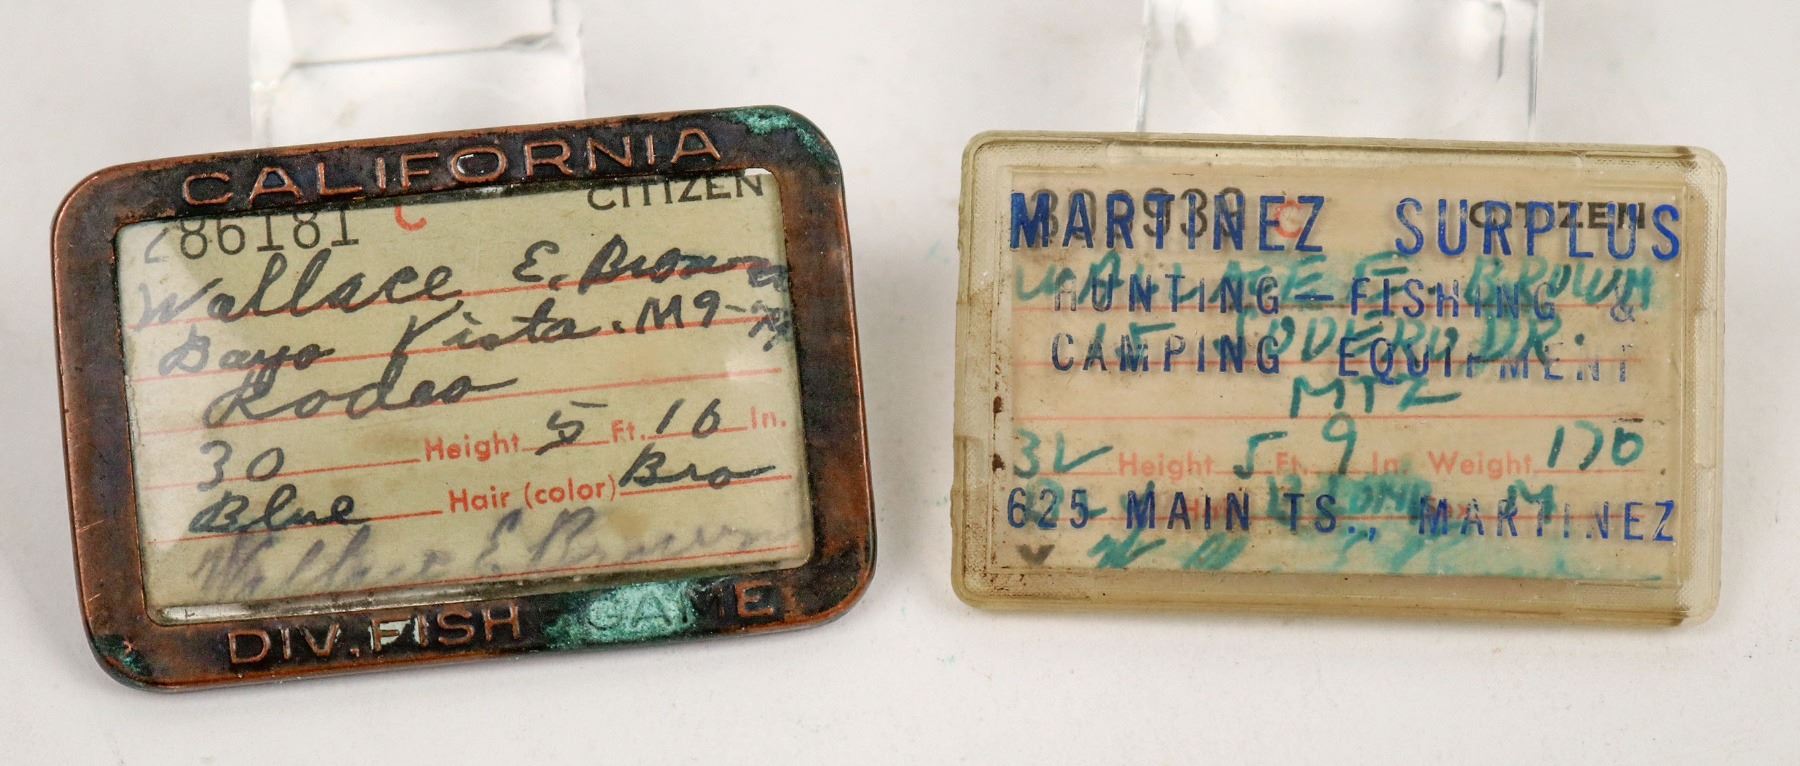 CALIFORNIA
286181 C CITIZEN
Wallace E. Brown
Bayo Vista. M9-
Rodeo
30 Height 5 Ft. 10 In.
Blue Hair (color) Bro
Wallace E Brown
DIV. FISH GAME
C CITIZEN
MARTINEZ SURPLUS
WALLACE E. BROWN
HUNTING - FISHING &
15 DR.
CAMPING EQUIPMENT
MTZ
32 Height 5 Ft. 9 In. Weight 170
625 MAIN TS., MARTINEZ
M